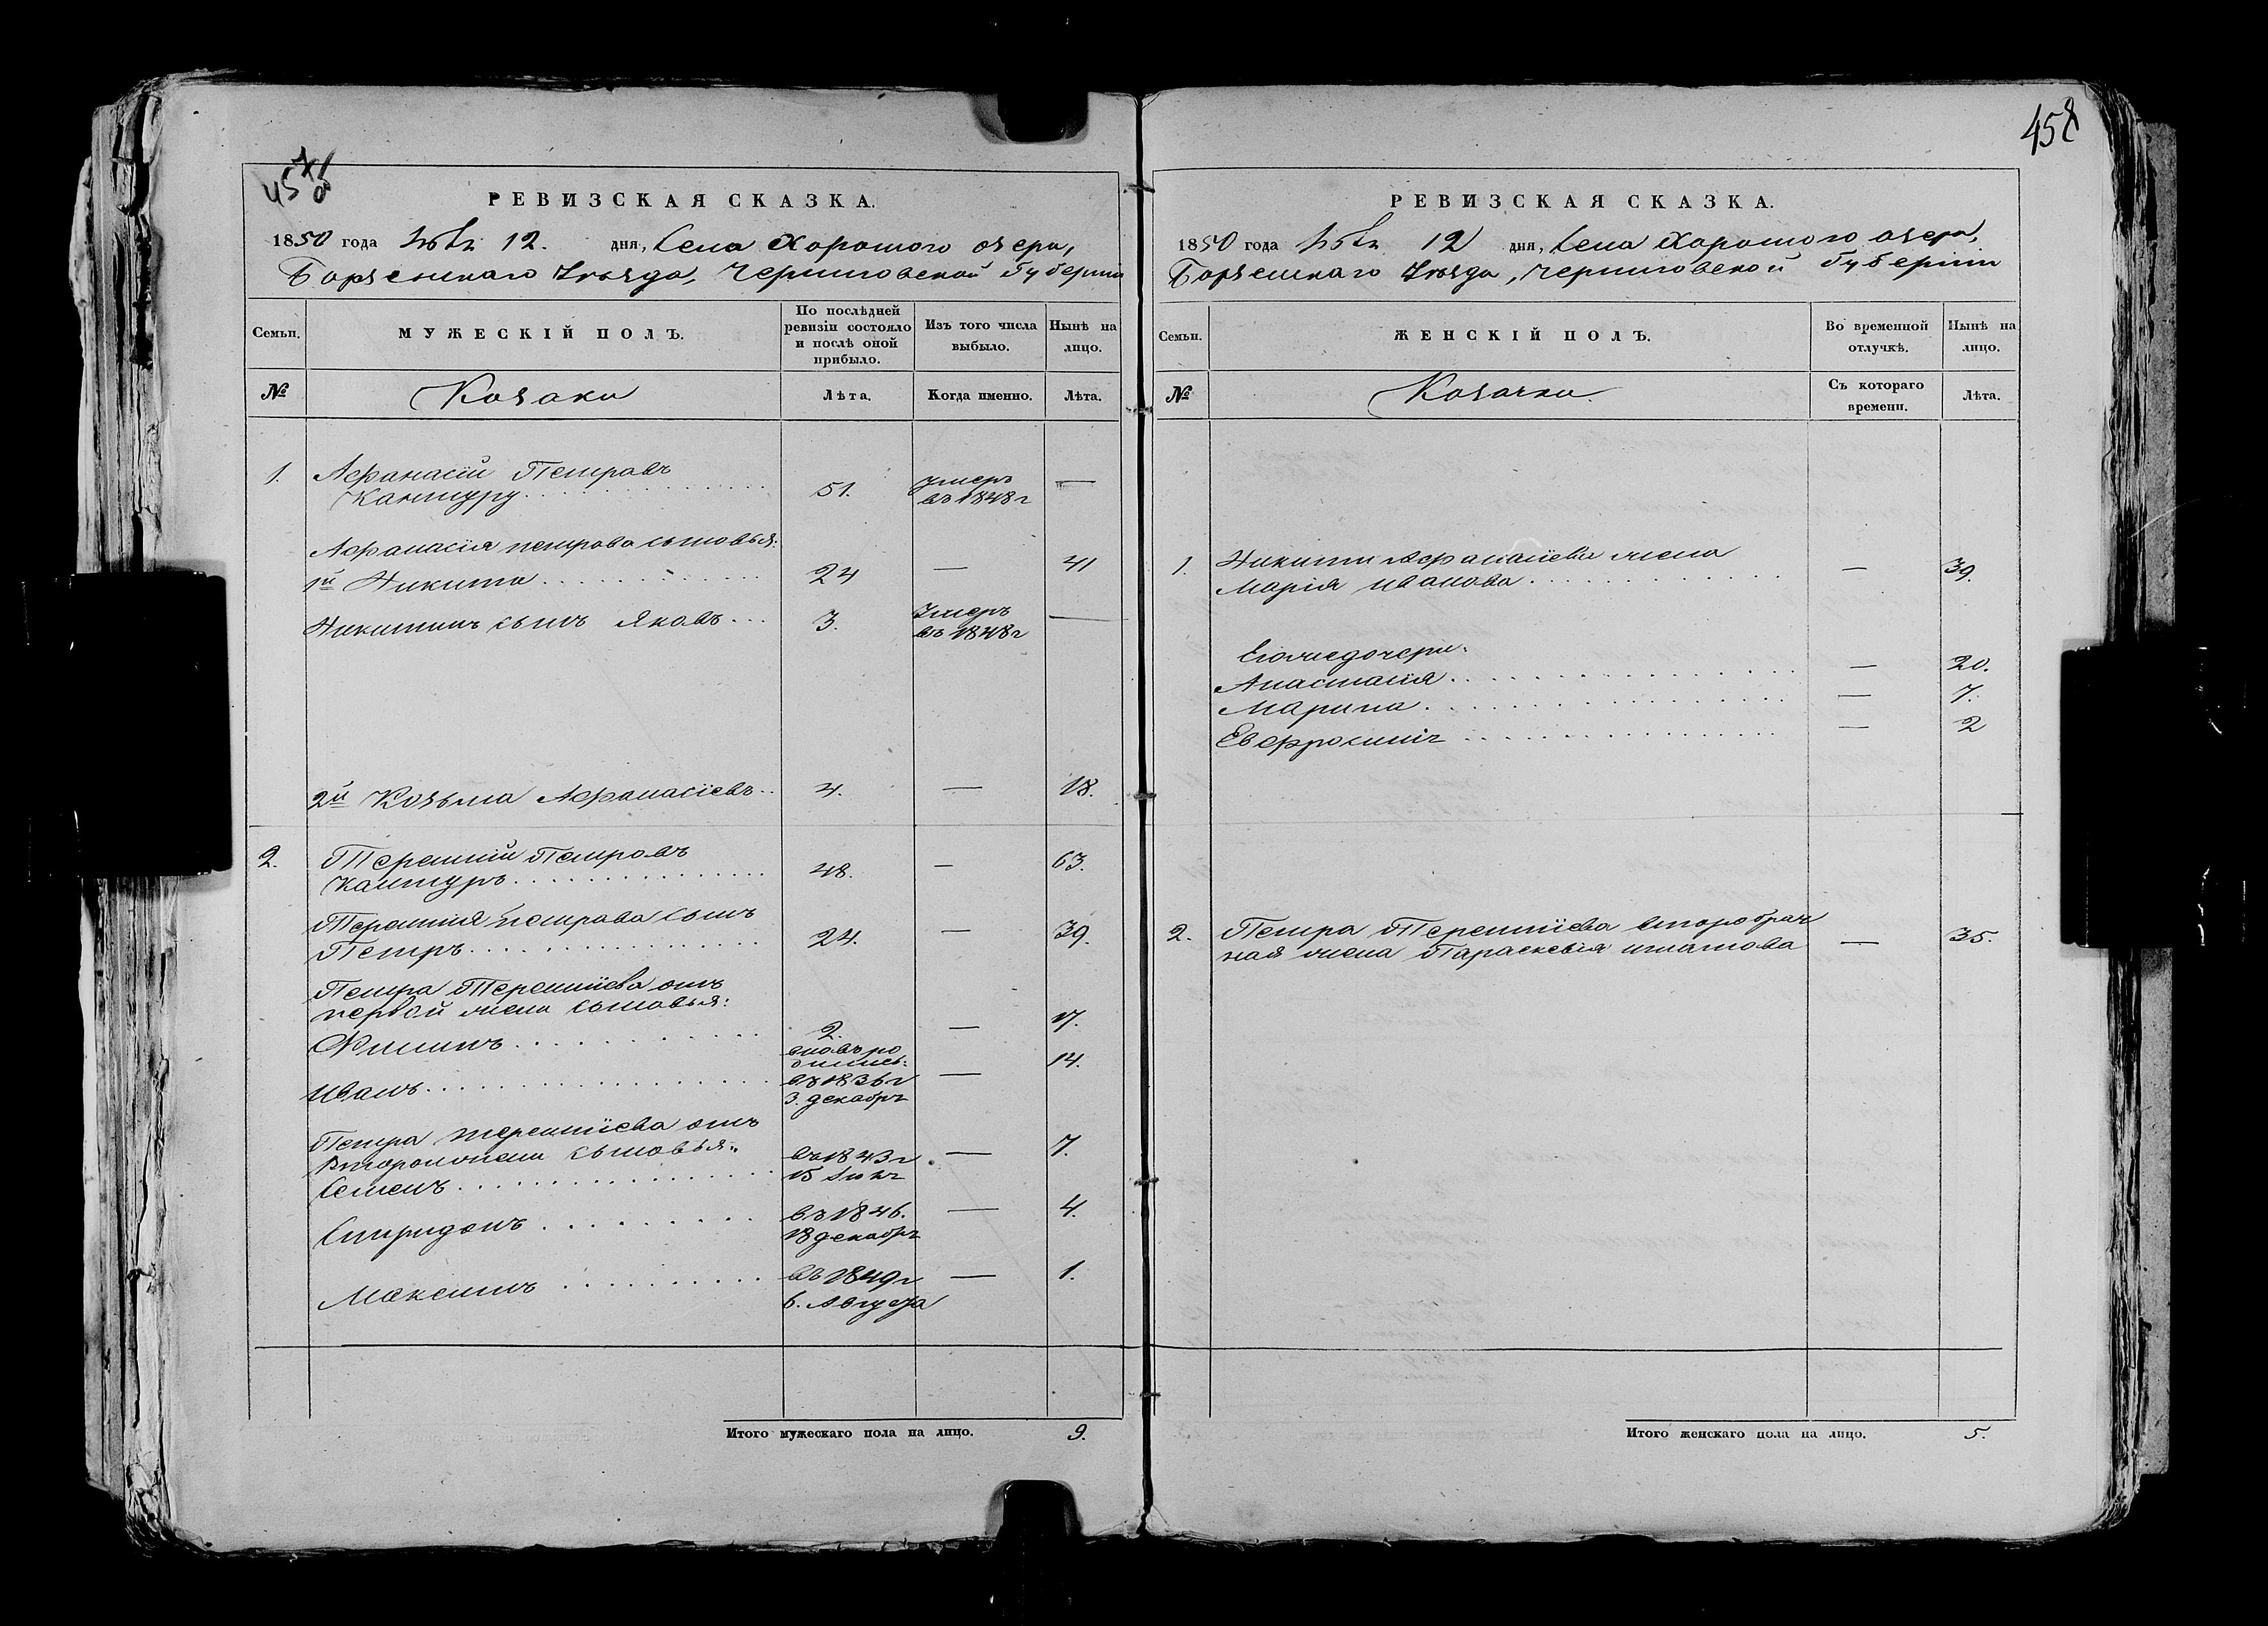 457
458
РЕВИЗСКАЯ СКАЗКА.
1850 года 12. дня, Села Хорошого озера,
Борзенскаго Уѣзда, Черниговской Губерніи
Семьи.
МУЖЕСКІЙ ПОЛЪ.
По послѣдней
ревизіи состояло
и послѣ оной
прибыло.
Изъ того числа
выбыло.
Нынѣ на
лицо.
№
Козаки
Лѣта.
Когда именно.
Лѣта.
1. Афанасій Петровъ
Кантуру 51. Умеръ —
въ 1848 г
Афанасія петрова сыновья:
1й Никита 24 — 41
Никитинъ сынъ Яковъ 3. Умеръ —
въ 1848 г
2й Козьма Афанасіевъ 4. — 18.
2. Терентій Петровъ
Кантуръ 48. — 63.
Терентія петрова сынъ
Петръ 24. — 39.
Петра Терентіева отъ
первой жены сыновья:
Филипъ 2. — 17.
вновь ро
дились:
Иванъ въ 1836 г — 14.
3. декабря
Петра терентіева отъ
второй жены сыновья:
Семенъ въ 1843 г — 7.
15
Спиридонъ въ 1846. — 4.
18 декабря
Максимъ въ 1849 г — 1.
6. Августа
Итого мужескаго пола на лицо. 9.
РЕВИЗСКАЯ СКАЗКА.
1850 года 12 дня, Села Хорошого озера,
Борзенскаго Уѣзда, Черниговской Губерніи
Семьи.
ЖЕНСКІЙ ПОЛЪ.
Во временной
отлучкѣ.
Нынѣ на
лицо.
№
Козачки
Съ котораго
времени.
Лѣта.
1. Никиты Афанасіева жена
Марія Иванова — 39.
Егожедочери:
Анастасія — 20.
Марина — 7.
Евфросинія — 2
2. Петра Терентіева второбрач
ная жена Параскевія игнатова — 35.
Итого женскаго пола на лицо. 5.